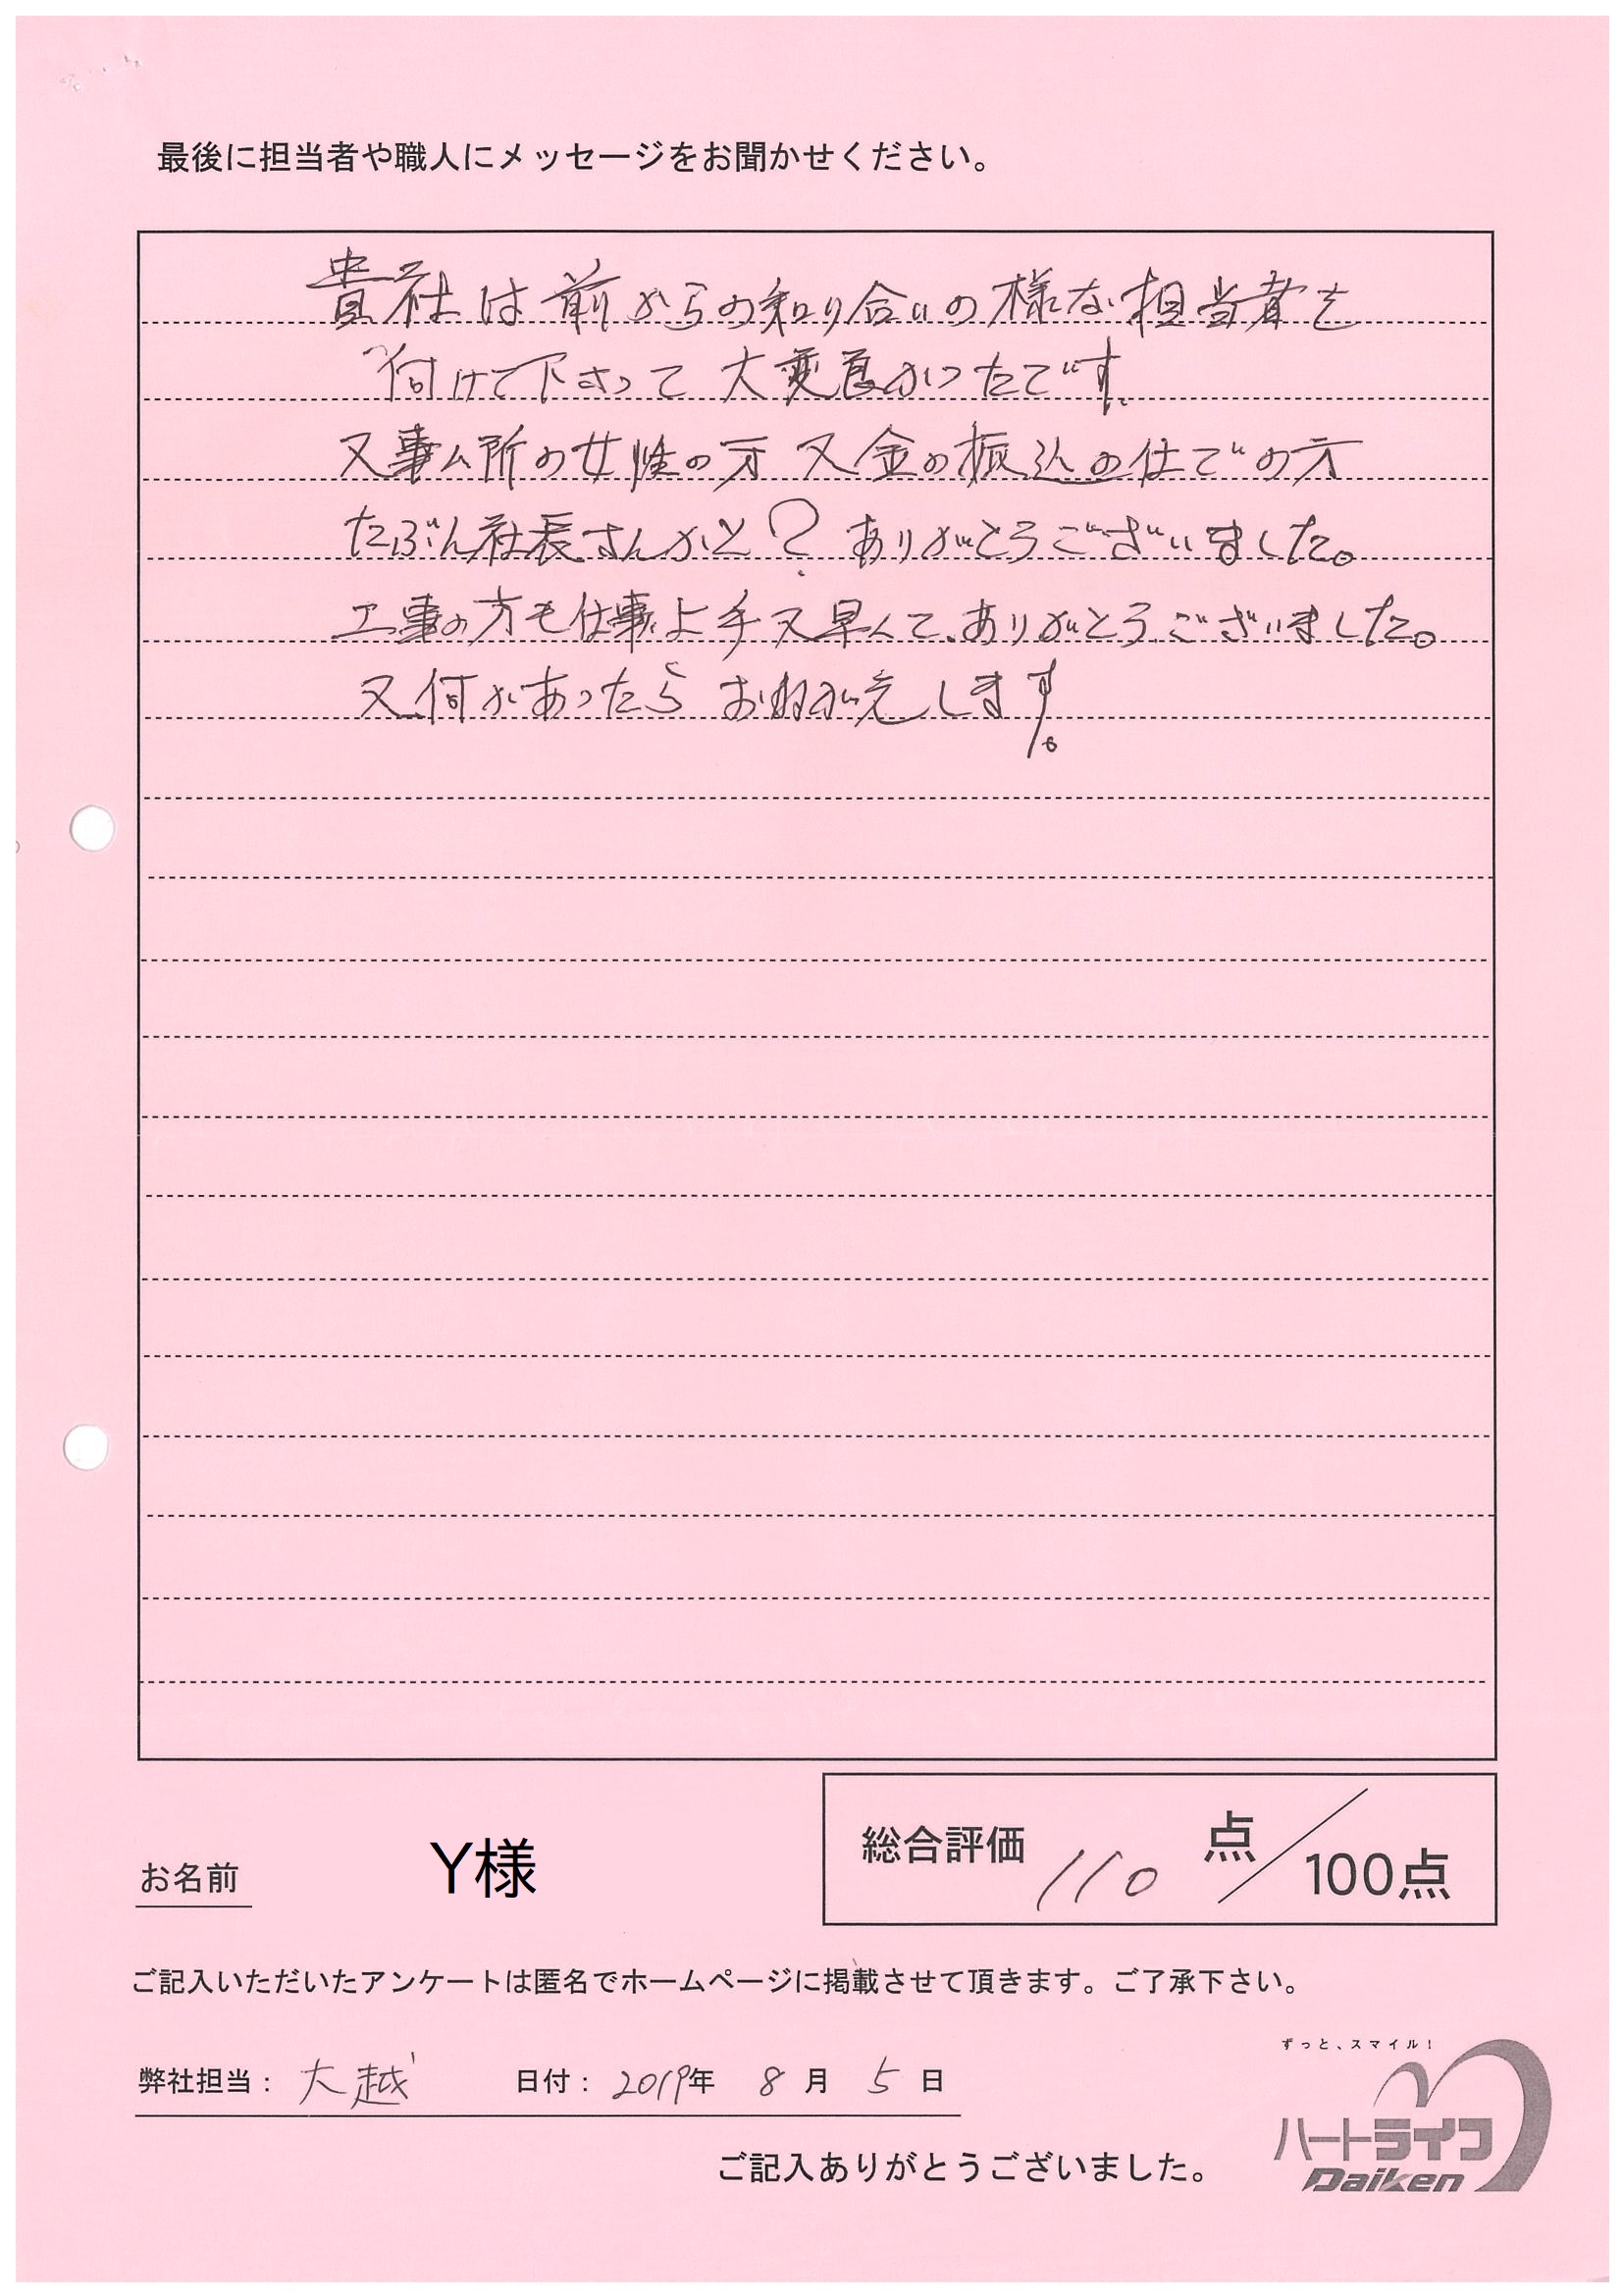 最後に担当者や職人にメッセージをお聞かせください。
貴社は前からの知り合いの様な担当者を
付けて下さって大変良かったです。
又事ム所の女性の方 又金の振込の仕での方
たぶん社長さんかと？ありがとうございました。
工事の方も仕事上手又早くて、ありがとうございました。
又何かあったらおねがえします。
お名前 Y様
総合評価 110 点／100点
ご記入いただいたアンケートは匿名でホームページに掲載させて頂きます。ご了承下さい。
弊社担当： 大越 日付： 2019年 8 月 5 日
ずっと、スマイル！
ハートライフ
Daiken
ご記入ありがとうございました。